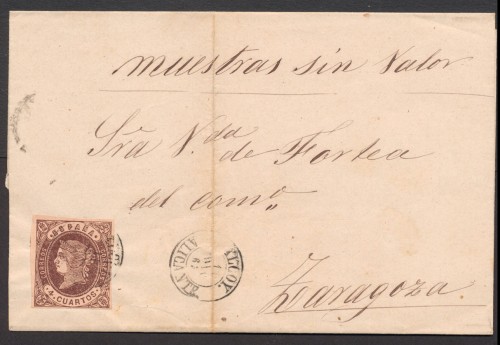 muestras sin Valor
Sra V.da de Fortea
del como
Zaragoza
CORREOS
ESPAÑA
4 CUARTOS
ALCOY
ALICANTE